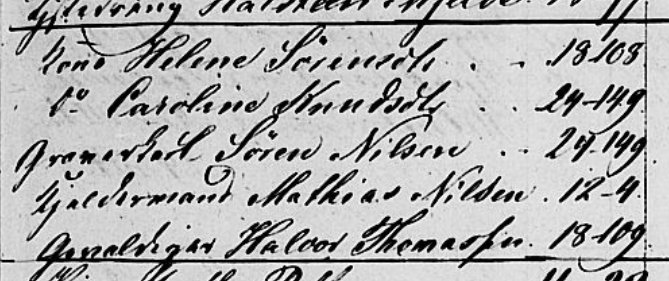 Kone Helene Sörensdtr . . 18-108
do Caroline Knudsdtr . . 24-149
Graverkarl Sören Nilsen . . 24-149
Kjeldermand Mathias Nilsen . 12-4
Gevaldiger Halvor Thomassen . 18-109